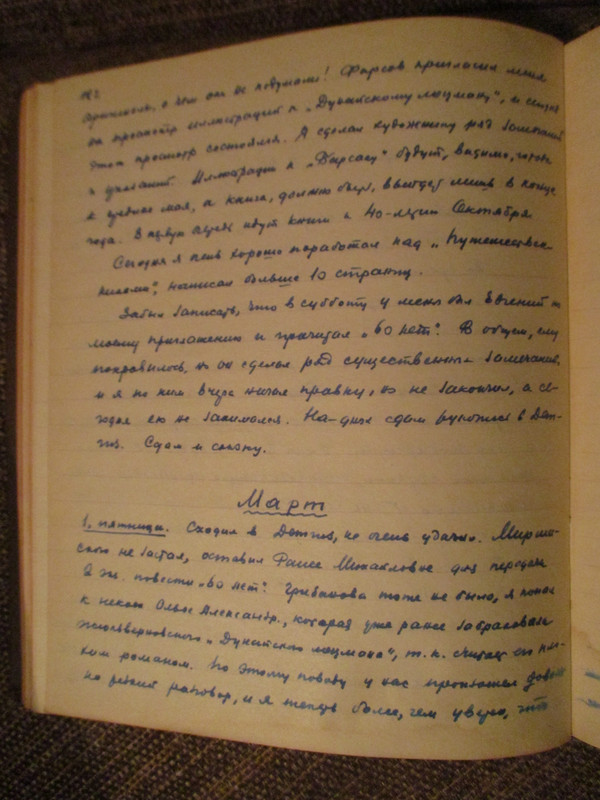 о чем они не подумали! Фирсов пригласил меня
на просмотр иллюстраций к „Дунайскому лоцману", и
этот просмотр состоялся. Я сделал художнику ряд замечаний
и указаний. Иллюстрации к будут, видимо, готовы
к средине мая, а книга, должно быть, выйдет лишь в конце
года. В первую очередь идут книги к 40-летию Октября.
Сегодня я очень хорошо поработал над „Путешествен-
никами", написал больше 10 страниц.
Забыл записать, что в субботу у меня был Евгений по
моему приглашению и прочитал „60 лет". В общем, ему
понравилось, но он сделал ряд существенных замечаний,
и я по ним вчера начал правку, но не закончил, а се-
годня ею не занимался. На-днях сдам рукопись в Дет-
гиз. Сдам и сказку.
Март
1. пятница. Сходил в Детгиз, не очень удачно.
не застал, оставил Раисе Михайловне для передачи
2 экз. повести „60 лет". Грибанова тоже не было, я попал
к некоей Ольге Александр., которая уже ранее забраковала
„Дунайского лоцмана", т. к. считает его пло-
хим романом. По этому поводу у нас произошел доволь-
но резкий разговор, и я теперь более, чем уверен, что